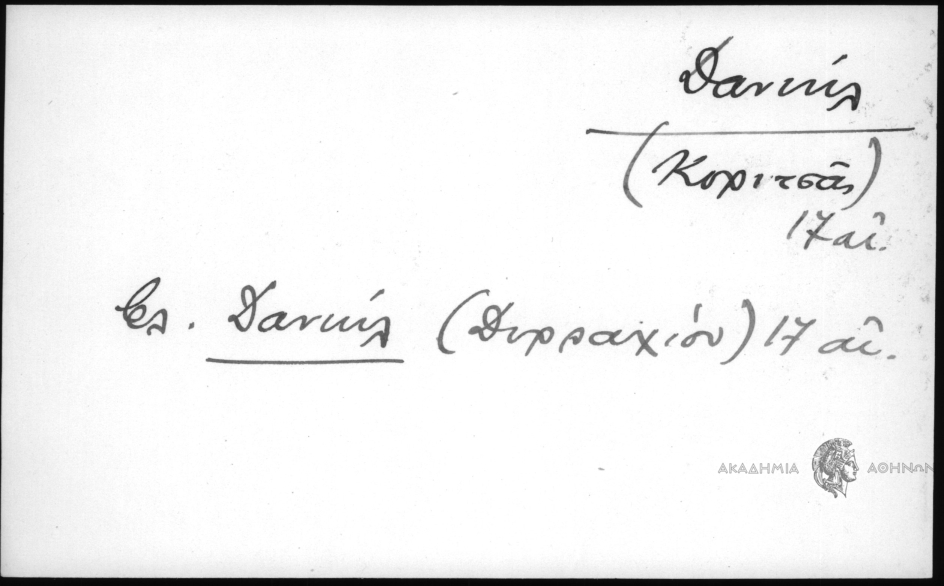 Δανιήλ
(Κοριτσᾶς)
17 αἰ.
βλ. Δανιήλ (Δυρραχίου) 17 αἰ.
ΑΚΑΔΗΜΙΑ ΑΘΗΝΩΝ